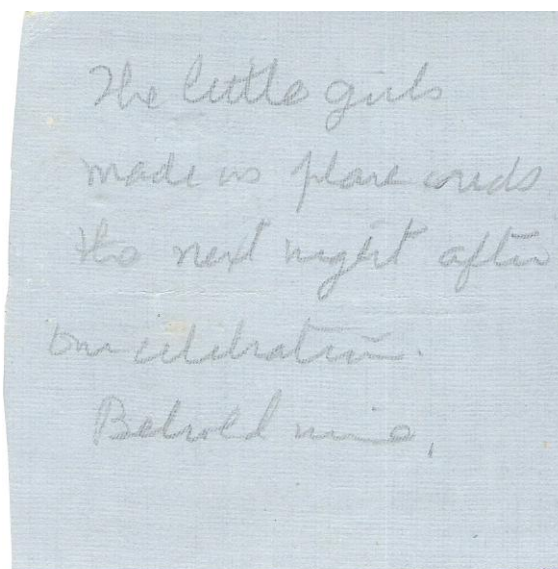 The little girls
made us place cards
the next night after
our celebration.
Behold mine,